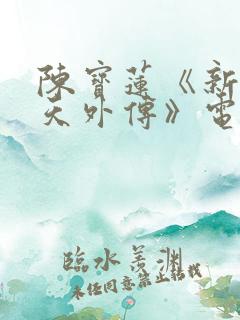 陳寶蓮《新
天外傳》電
臨水羨淵
未经同意禁止转载